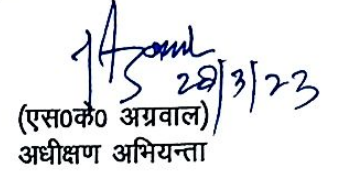 28/3/23
(एस0के0 अग्रवाल)
अधीक्षण अभियन्ता